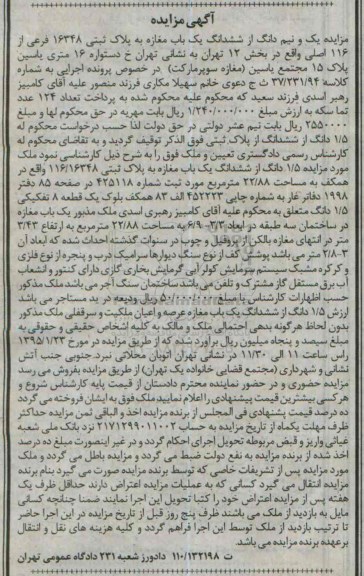 آگهی مزایده
مزایده یک و نیم دانگ از ششدانگ یک باب مغازه به پلاک ثبتی ۱۶۳۴۸ فرعی از
۱۱۶ اصلی واقع در بخش ۱۲ تهران به نشانی تهران خ دستواره ۱۶ متری یاسین
پلاک ۱۵ مجتمع یاسین (مغازه سوپرمارکت) در خصوص پرونده اجرایی به شماره
کلاسه ۳۷/۲۳۱/۹۴ ث ج دعوی خانم سهیلا مکاری فرزند منصور علیه آقای کامبیز
رهبر اسدی فرزند سعید که محکوم علیه محکوم شده به پرداخت تعداد ۱۲۴ عدد
تما سکه به ارزش مبلغ ۱/۲۴۰/۰۰۰/۰۰۰ ریال بابت مهریه در حق محکوم لها و مبلغ
۲۵۵۰۰۰۰ ریال بابت نیم عشر دولتی در حق دولت لذا حسب درخواست محکوم له
۱/۵ دانگ از ششدانگ از پلاک ثبتی فوق الذکر توقیف گردید و به تقاضای محکوم له
کارشناس رسمی دادگستری تعیین و ملک فوق را به شرح ذیل کارشناسی نمود ملک
مورد مزایده ۱/۵ دانگ از ششدانگ یک باب مغازه به پلاک ثبتی ۱۱۶/۱۶۳۴۸ واقع در
همکف به مساحت ۲۲/۸۸ مترمربع مورد ثبت شماره ۴۲۵۱۱۸ در صفحه ۸۵ دفتر
۱۹۹۸ دفاتر غار به شماره چاپی ۴۵۲۲۲۳ الف ۸۳ همکف بلوک یک قطعه ۸ تفکیکی
۱/۵ دانگ متعلق به محکوم علیه آقای کامبیز رهبری اسدی ملک مذبور یک باب مغازه
در ساختمان سه طبقه در ابعاد ۳/۳-۶/۹ به مساحت ۲۲/۸۸ مترمربع به ارتفاع ۳/۴۳
متر در انتهای مغازه بالکن از پروفیل و چوب در سنوات گذشته احداث شده که ابعاد آن
۲/۸-۳ متر می باشد پوشش کف از نوع سنگ دیوارها سرامیک درب و پنجره از نوع فلزی
و کرکره مشبک سیستم سرمایش کولر آبی گرمایش بخاری گازی دارای کنتور و انشعاب
آب برق مستقل گاز مشترک و تلفن می باشد ساختمان سنگ آجر می باشد ملک مذکور
حسب اظهارات کارشناس با مبلغ ۵۰/۰۰۰/۰۰۰ ریال ودیعه در ید مستاجر می باشد
ارزش ۱/۵ دانگ از ششدانگ یک باب مغازه عرصه و اعیان ملکیت و سرقفلی ملک مذکور
بدون لحاظ هر گونه بدهی احتمالی ملک و مالک به کلیه اشخاص حقیقی و حقوقی به
مبلغ سیصد و پنجاه میلیون ریال برآورد شده که از طریق مزایده در مورخ ۱۳۹۵/۱/۲۳
راس ساعت ۱۱ الی ۱۱/۳۰ در نشانی تهران اتوبان محلاتی نبرد جنوبی جنب آتش
نشانی و شهرداری (مجتمع قضایی خانواده یک تهران) از طریق مزایده بفروش می رسد
مزایده حضوری و در حضور نماینده محترم دادستان از قیمت پایه کارشناس شروع و
هر کسی بیشترین قیمت پیشنهادی را اعلام نماید ملک فوق به ایشان فروخته می گردد
ده درصد قیمت پشنهادی فی المجلس از برنده مزایده اخذ و الباقی ثمن مزایده حداکثر
ظرف مهلت یکماه از تاریخ مزایده به حساب ۲۱۷۱۲۹۹۰۱۱۰۰۲ نزد بانک ملی شعبه
غیاثی واریز و قبض مربوطه تحویل اجرای احکام گردد و در غیر اینصورت مبلغ ده درصد
اخذ شده از برنده مزایده به نفع دولت ضبط می گردد و مزایده باطل می گردد و ملک
مورد مزایده پس از تشریفات خاصی که توسط برنده مزایده صورت می گیرد بنام برنده
مزایده انتقال می گیرد کسانی که به عملیات مزایده اعتراض دارند حداقل ظرف یک
هفته پس از مزایده اعتراض خود را کتبا تحویل این اجرا نمایند ضمنا چنانچه کسانی
مایل به بازدید از ملک می باشند ظرف پنج روز قبل از تاریخ مزایده در این اجرا حاضر
تا ترتیب بازدید از ملک توسط این اجرا فراهم گردد و کلیه هزینه های نقل و انتقال
برعهده برنده مزایده می باشد.
ت ۱۱۰/۱۳۲۱۹۸ دادورز شعبه ۲۳۱ دادگاه عمومی تهران